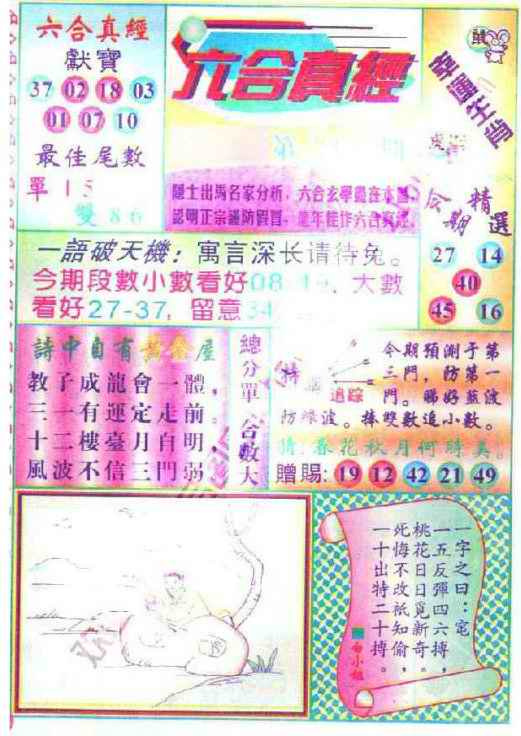 六合真經
獻寶
37 02 18 03
01 07 10
最佳尾數
單15
雙86
六合真經
鼠
隱士出馬名家分析，六合玄學盡在本
認明正宗謹防假冒，龍年佳作六合真經
精選
期
27 14
40
45 16
一語破天機：寓言深长请待兔。
今期段數小數看好08 、大數
看好27-37，留意34
詩中自有黃金屋
教子成龍會一體，
三一有運定走前。
十二樓臺月自明，
風波不信三門弱。
總分單、合數大
特
追踪
今期預測于第
三門，防第一
門。睇好藍波
防綠波。棒雙數追小數。
猜：春花秋月何時美
贈賜：19 12 42 21 49
一字之曰：宅
一五反彈四六搏，
桃花日日覓新奇。
死悔不改祇知偷，
一十出特二十搏。
白小姐